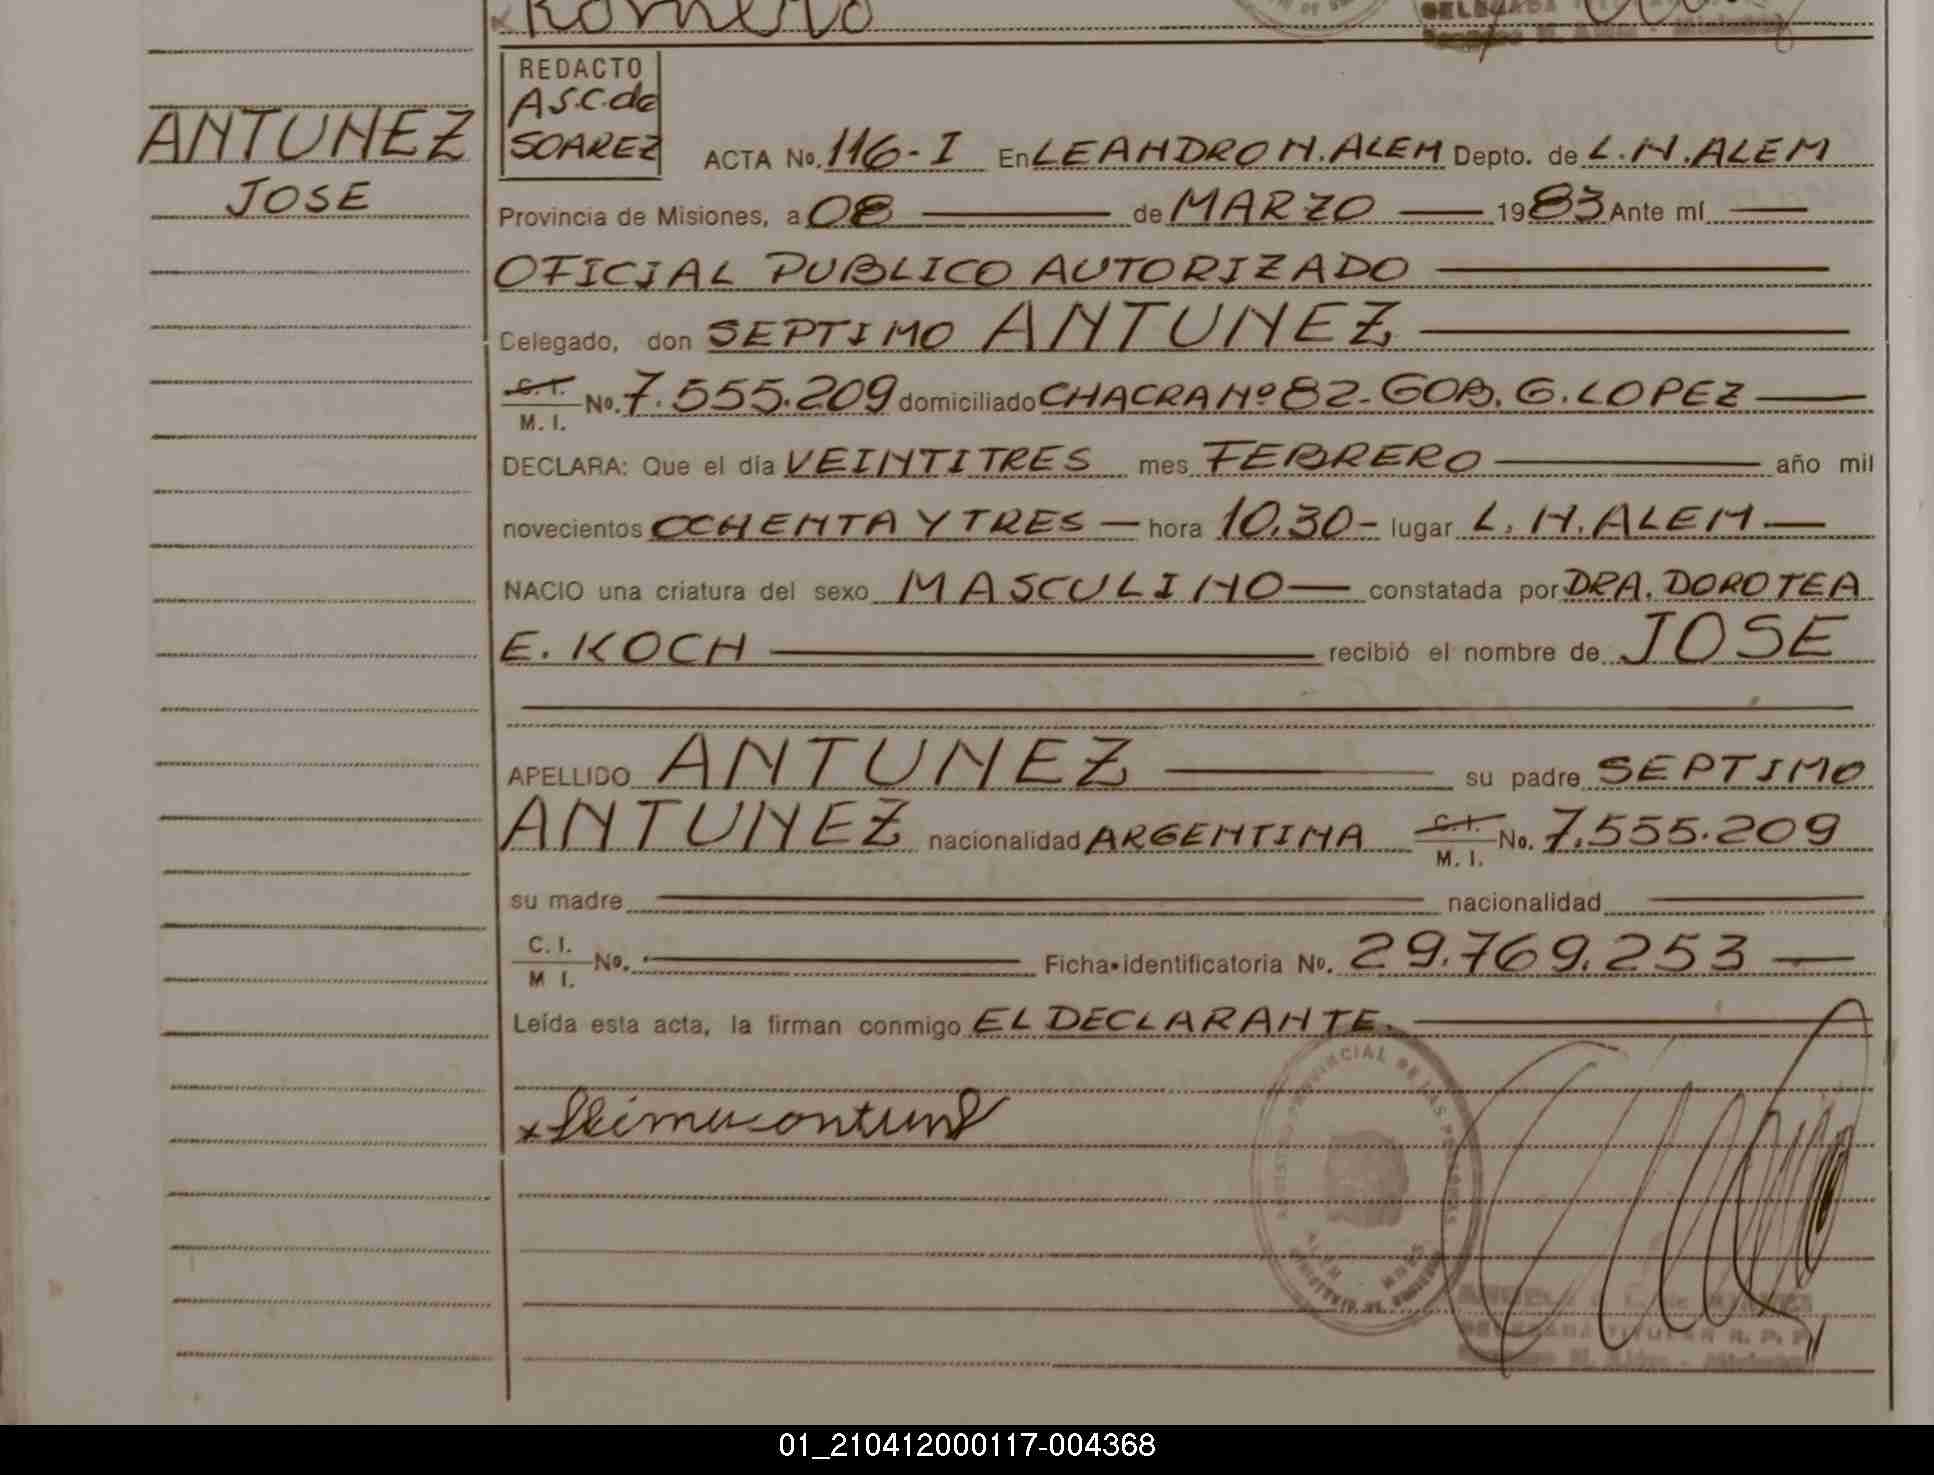 Romero
DELEGADA TITULAR
REDACTO
A.S.C.de
SOAREZ
ANTUNEZ
JOSE
ACTA No. 116-I En LEANDRO N. ALEM Depto. de L.N.ALEM
Provincia de Misiones, a 08 de MARZO 1983 Ante mí
OFICIAL PUBLICO AUTORIZADO
Celegado, don SEPTIMO ANTUNEZ
C.I. M. I. No. 7.555.209 domiciliado CHACRA Nº 82-GOB. G. LOPEZ
DECLARA: Que el día VEINTITRES mes FEBRERO año mil
novecientos OCHENTA Y TRES hora 10,30- lugar L. N. ALEM
NACIO una criatura del sexo MASCULINO constatada por DRA. DOROTEA
E. KOCH recibió el nombre de JOSE
APELLIDO ANTUNEZ su padre SEPTIMO
ANTUNEZ nacionalidad ARGENTINA C.I. M. I. No. 7.555.209
su madre nacionalidad
C. I. M I. No. Ficha•identificatoria No. 29.769.253
Leída esta acta, la firman conmigo EL DECLARANTE.
PROVINCIAL DE LAS PERSONAS
DELEGADA TITULAR R. P. P.
01_210412000117-004368